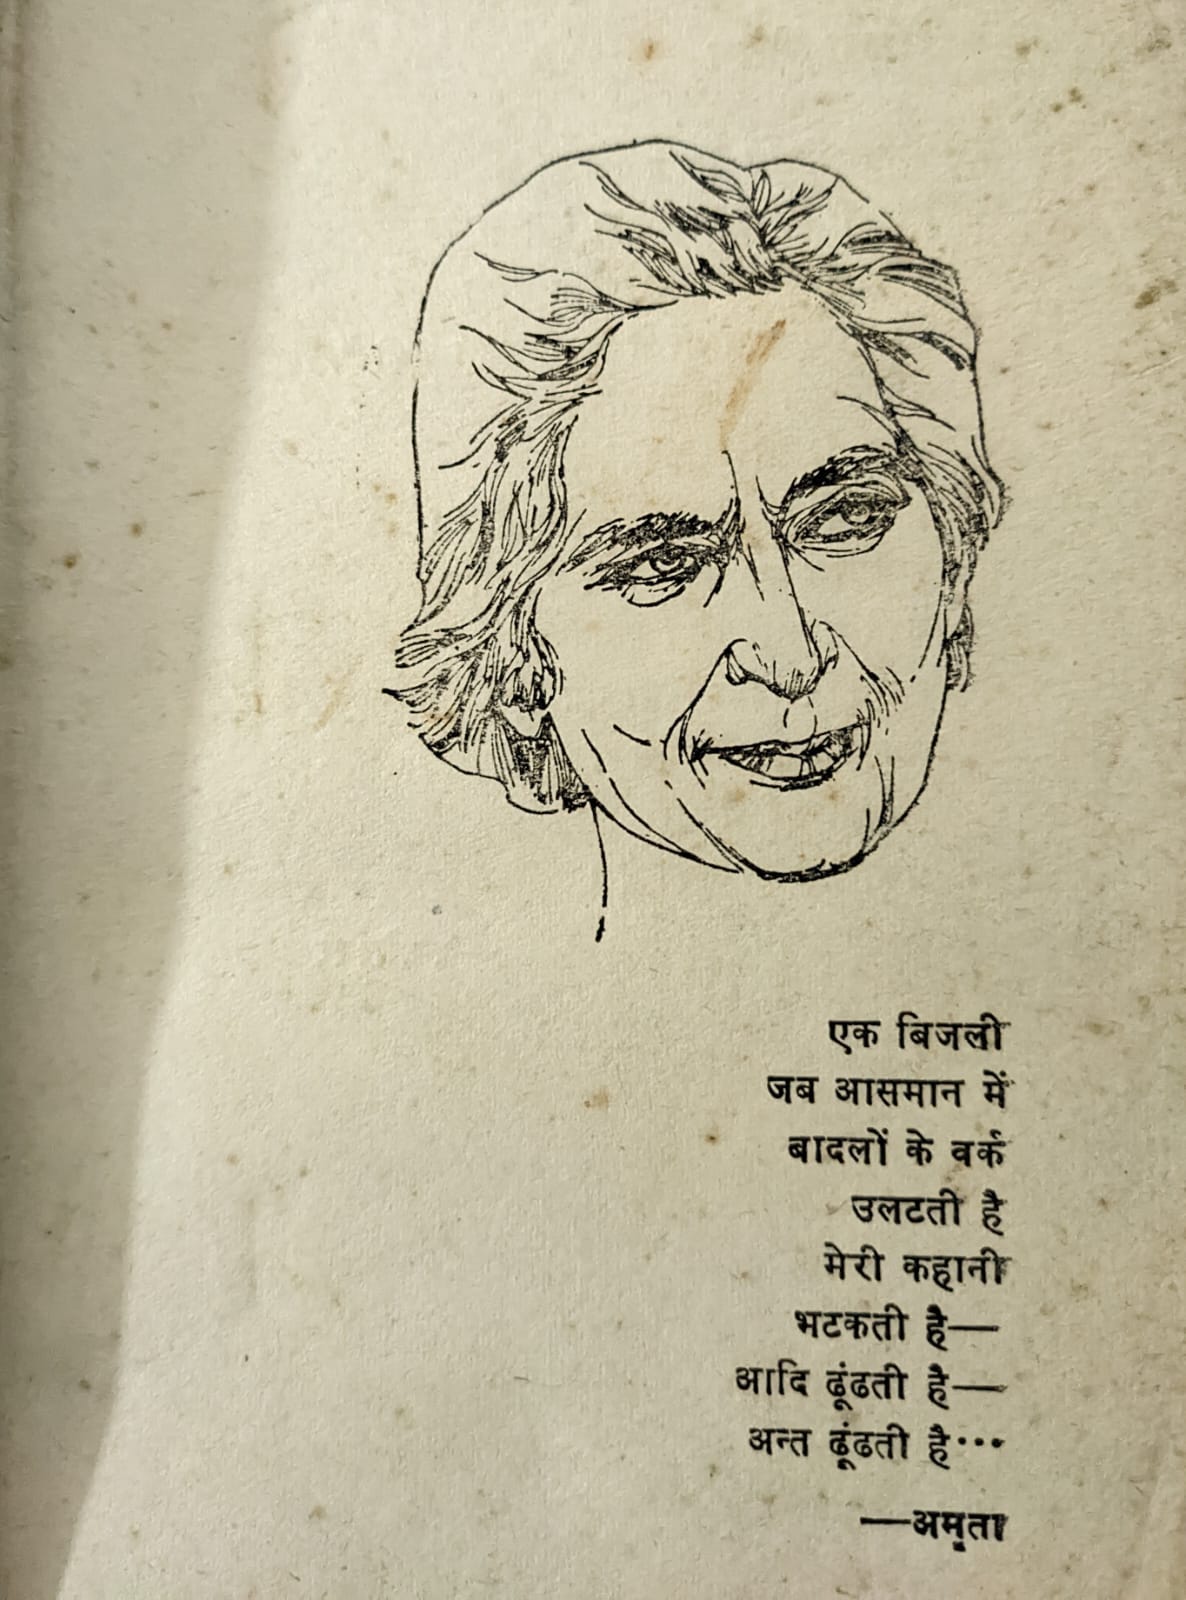 एक बिजली
जब आसमान में
बादलों के वर्क
उलटती है
मेरी कहानी
भटकती है—
आदि ढूंढती है—
अन्त ढूंढती है···
—अमृता